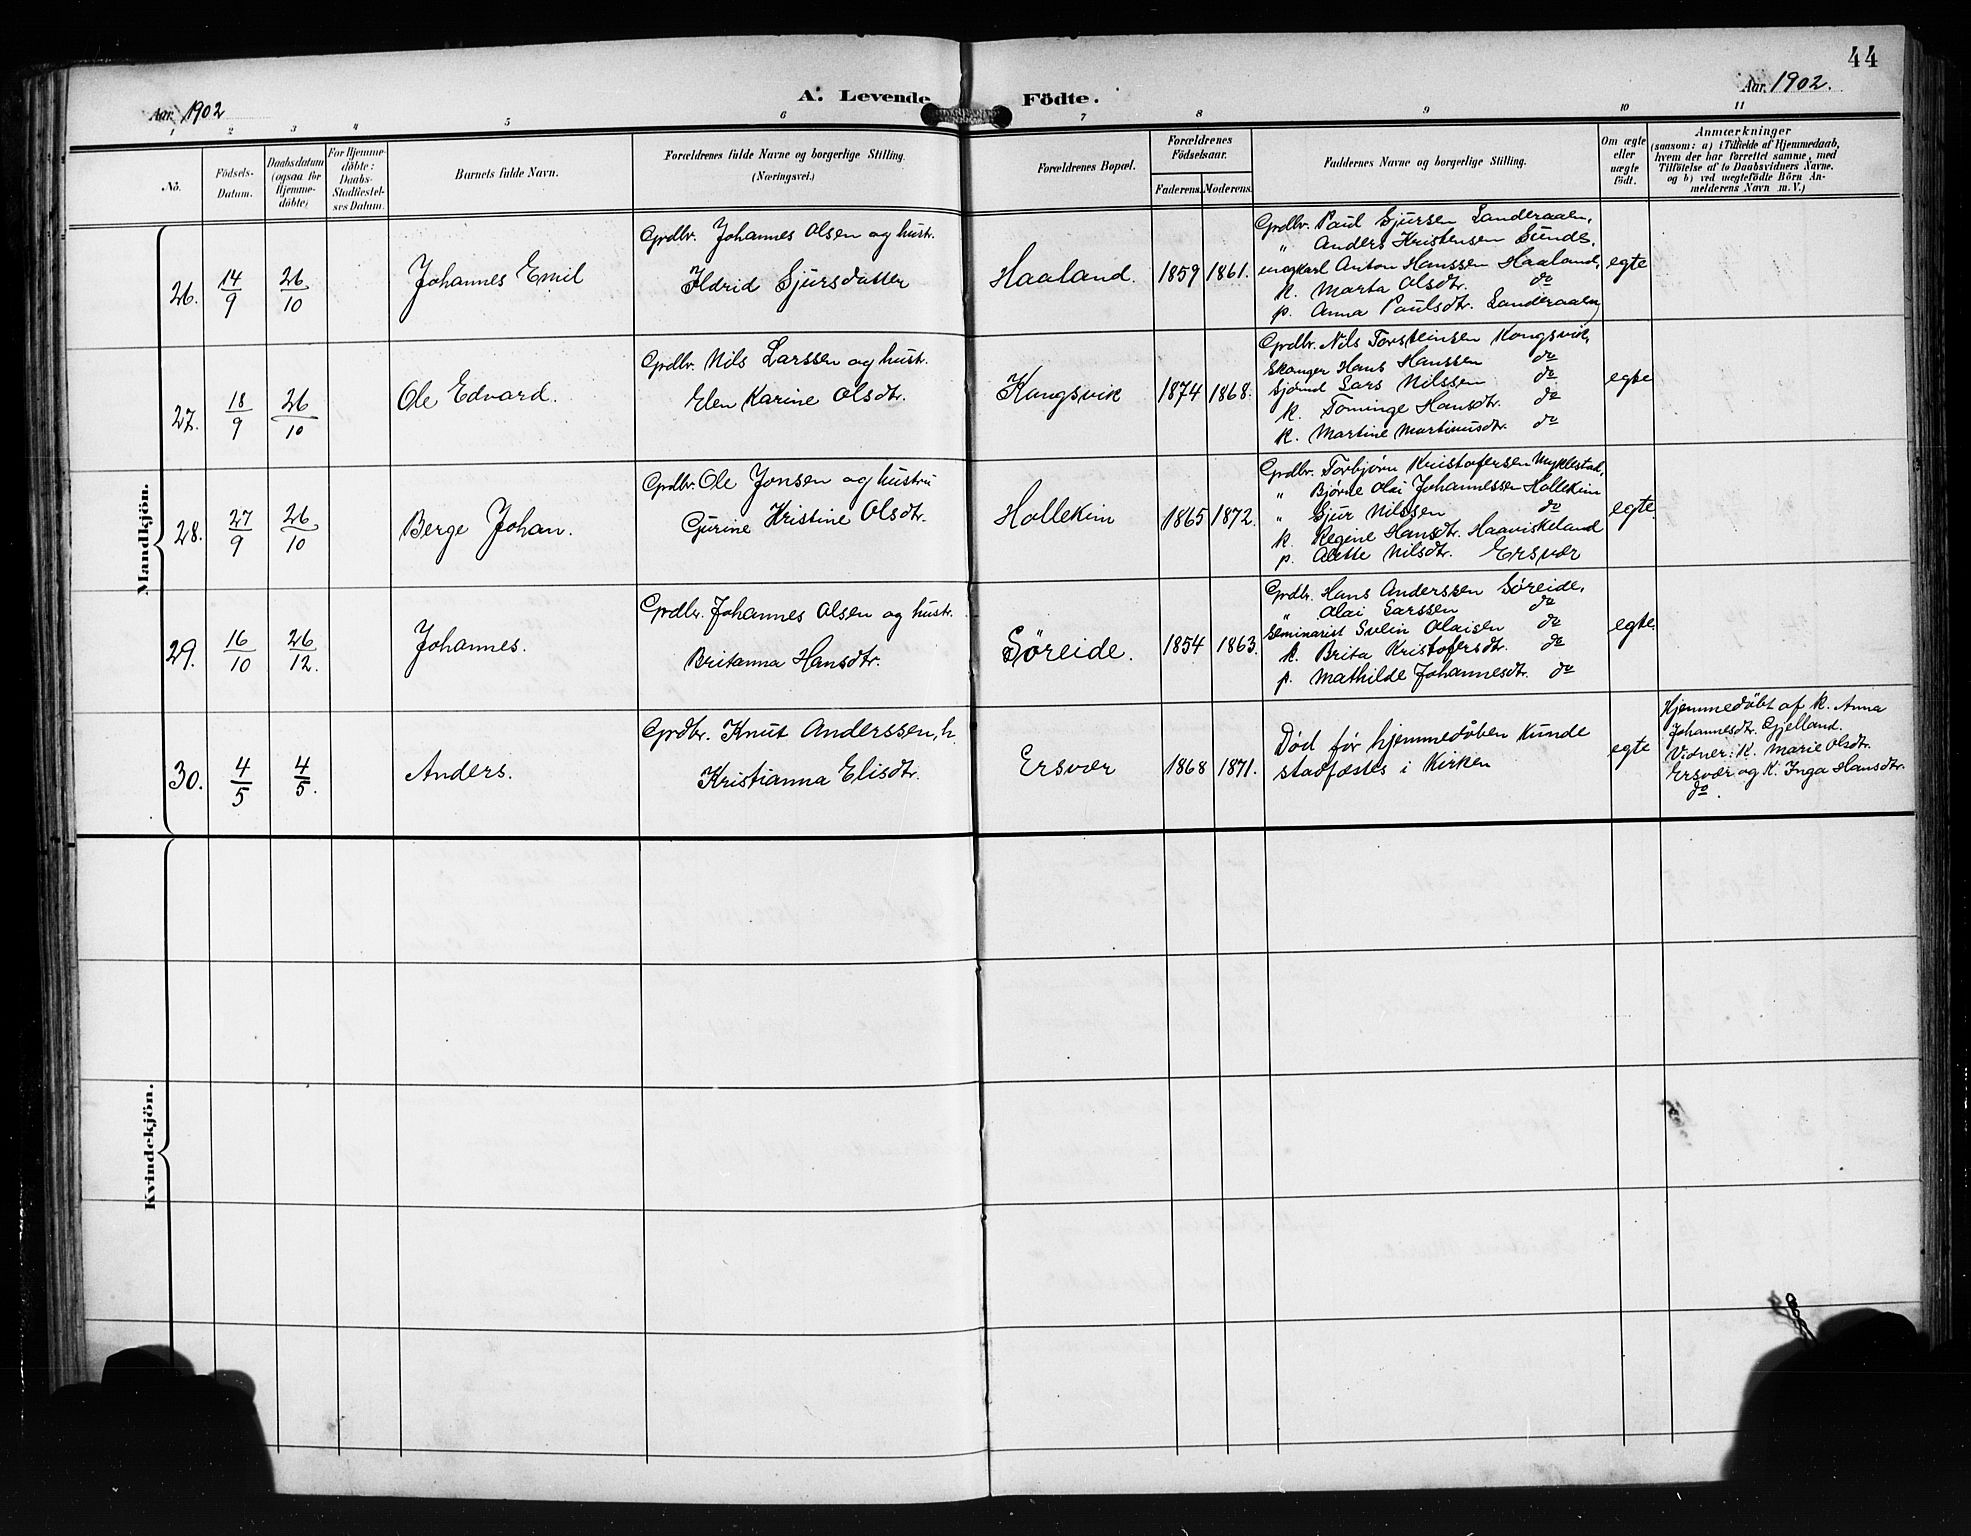 44
Aar 1902
A. Levende Födte.
Aar 1902.
1 2 3 4 5 6 7 8 9 10 11
No.
Födsels-
Datum.
Daabsdatum
(ogsaa for
Hjemme-
döbte)
For Hjemme-
döbte:
Daabs-
Stadfæstel-
ses Datum.
Barnets fulde Navn.
Forældrenes fulde Navne og borgerlige Stilling.
(Næringsvei.)
Forældrenes Bopæl.
Forældrenes
Födselsaar.
Faderens. Moderens.
Faddernes Navne og borgerlige Stilling.
Om ægte
eller
uægte
födt.
Anmærkninger
(saasom: a) i Tilfælde af Hjemmedaab,
hvem der har forrettet samme, med
Tilföielse af to Daabsvidners Navne.
og b) ved uægtefödte Börn An-
melderens Navn m. V.)
Mandkjön.
26.
14/9
26/10
Johannes Emil
Grdbr. Johannes Olsen og hustr.
Ildrid Sjursdatter
Haaland.
1859 1861.
Grdbr. Paul Sjursen Sanderaalen,
" Anders Kristensen Sunde,
ungkarl Anton Hanssen Haaland,
k. Marta Olsdtr. do
p. Anna Paulsdtr. Sanderaalen
egte
27.
18/9
26/10
Ole Edvard.
Grdbr. Nils Larssen og hust.
Elen Karine Olsdtr.
Kongsvik
1874 1868.
Grdbr. Nils Torsteinsen Kongsvik,
Skauger Hans Hanssen do
Sjömd Lars Nilssen do
k. Tominge Hansdtr. do
k. Martine Martinusdtr. do
egte
28.
27/9
26/10
Berge Johan.
Grdbr. Ole Jonsen og hustru
Gurine Kristine Olsdtr.
Hollekim
1865 1872.
Grdbr. Torbjørn Kristofersen Myklestad,
" Bjørne Olai Johannessen Hollekim
" Sjur Nilssen do
k. Regine Hansdtr. Haaviskeland
p. Alette Nilsdtr. Ersvær
egte.
29.
16/10
26/12.
Johannes.
Grdbr. Johannes Olsen og hustr.
Britanna Hansdtr.
Søreide.
1854 1863.
Grdbr. Hans Anderssen Søreide,
" Olai Larssen do
Seminarist Svein Olaisen do
k. Brita Kristofersdtr. do
p. Mathilde Johannesdtr. do
egte.
30.
4/5
4/5.
Anders.
Grdbr. Knut Anderssen, h.
Kristianna Elisdtr.
Ersvær
1868 1871.
Død før hjemmedåben kunde
stadfæstes i Kirken
egte
Hjemmedøbt af k. Anna
Johannesdtr. Gjelland.
Vidner: k. Marie Olsdtr.
Ersvær og k. Inga Hansdtr.
do.
Kvindekjön.